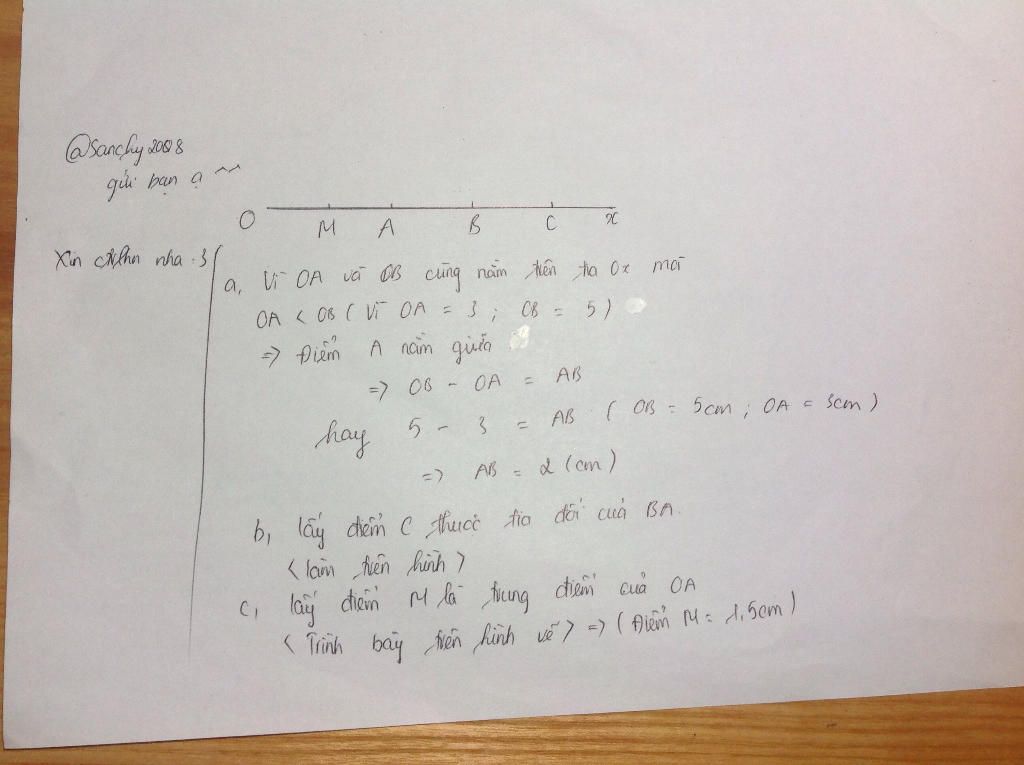 @Sanchy2008
gửi bạn ạ ~~
O M A B C x
Xin ctlhn nha :3
a, Vì OA và OB cùng nằm trên tia Ox mà
OA < OB ( Vì OA = 3 ; OB = 5 )
=> Điểm A nằm giữa
=> OB - OA = AB
hay 5 - 3 = AB ( OB = 5cm ; OA = 3cm )
=> AB = 2 (cm)
b, lấy điểm C thuộc tia đối của BA.
< làm trên hình >
c, lấy điểm M là trung điểm của OA
< Trình bày trên hình vẽ > => ( Điểm M = 1,5cm )